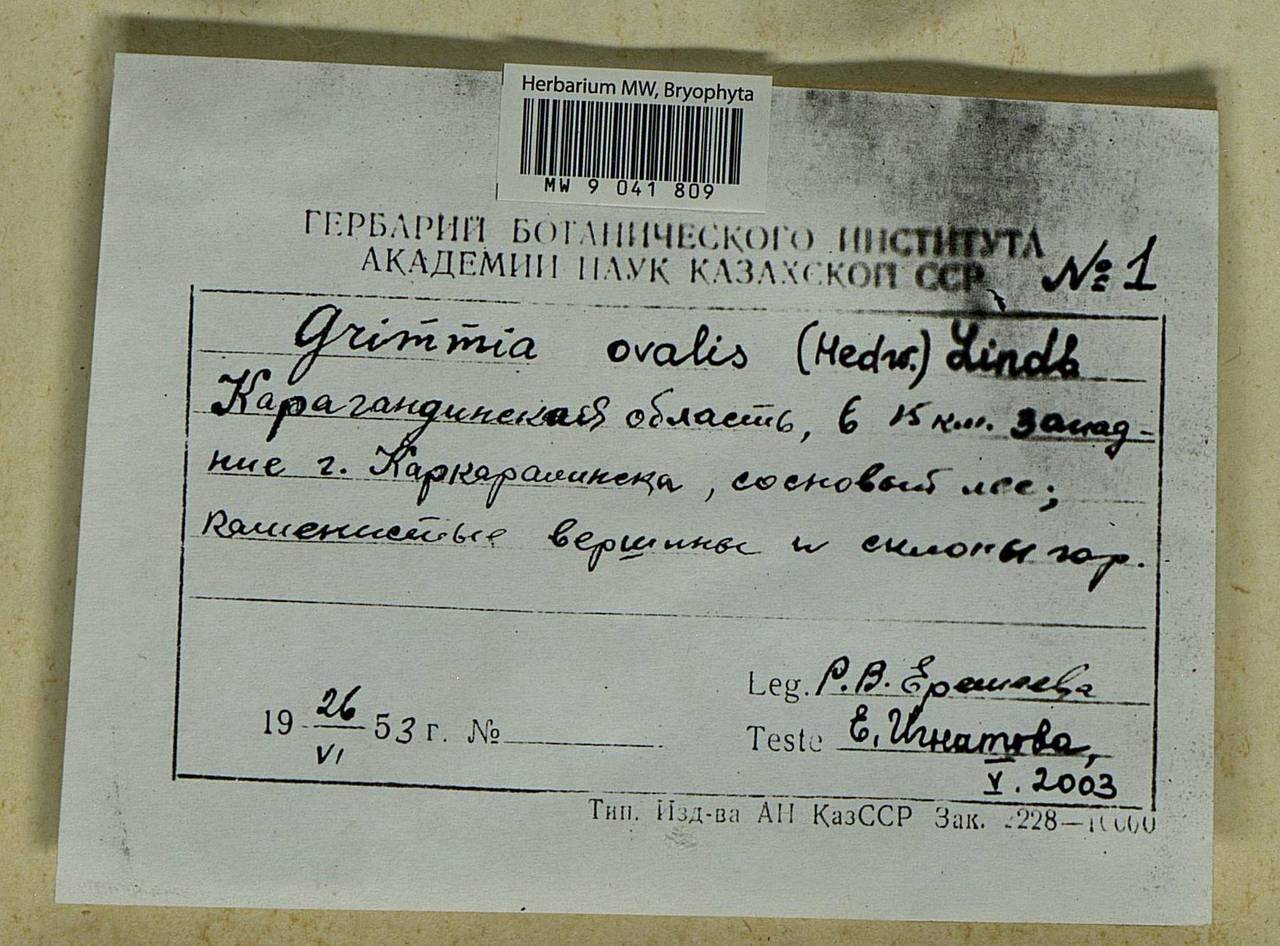 Herbarium MW, Bryophyta
MW 9 041 809
ГЕРБАРИЙ БОТАНИЧЕСКОГО ИНСТИТУТА
АКАДЕМИИ НАУК КАЗАХСКОЙ ССР № 1
Grimmia ovalis (Hedw.) Lindb
Карагандинская область, в 15 км. запад-
ние г. Каркаралинска, сосновый лес;
каменистые вершины и склоны гор.
Leg. Р.В.
19 26/VI 53 г. №
Teste Е. Игнатова,
V. 2003
Тип. Изд-ва АН КазССР Зак. 228—10000